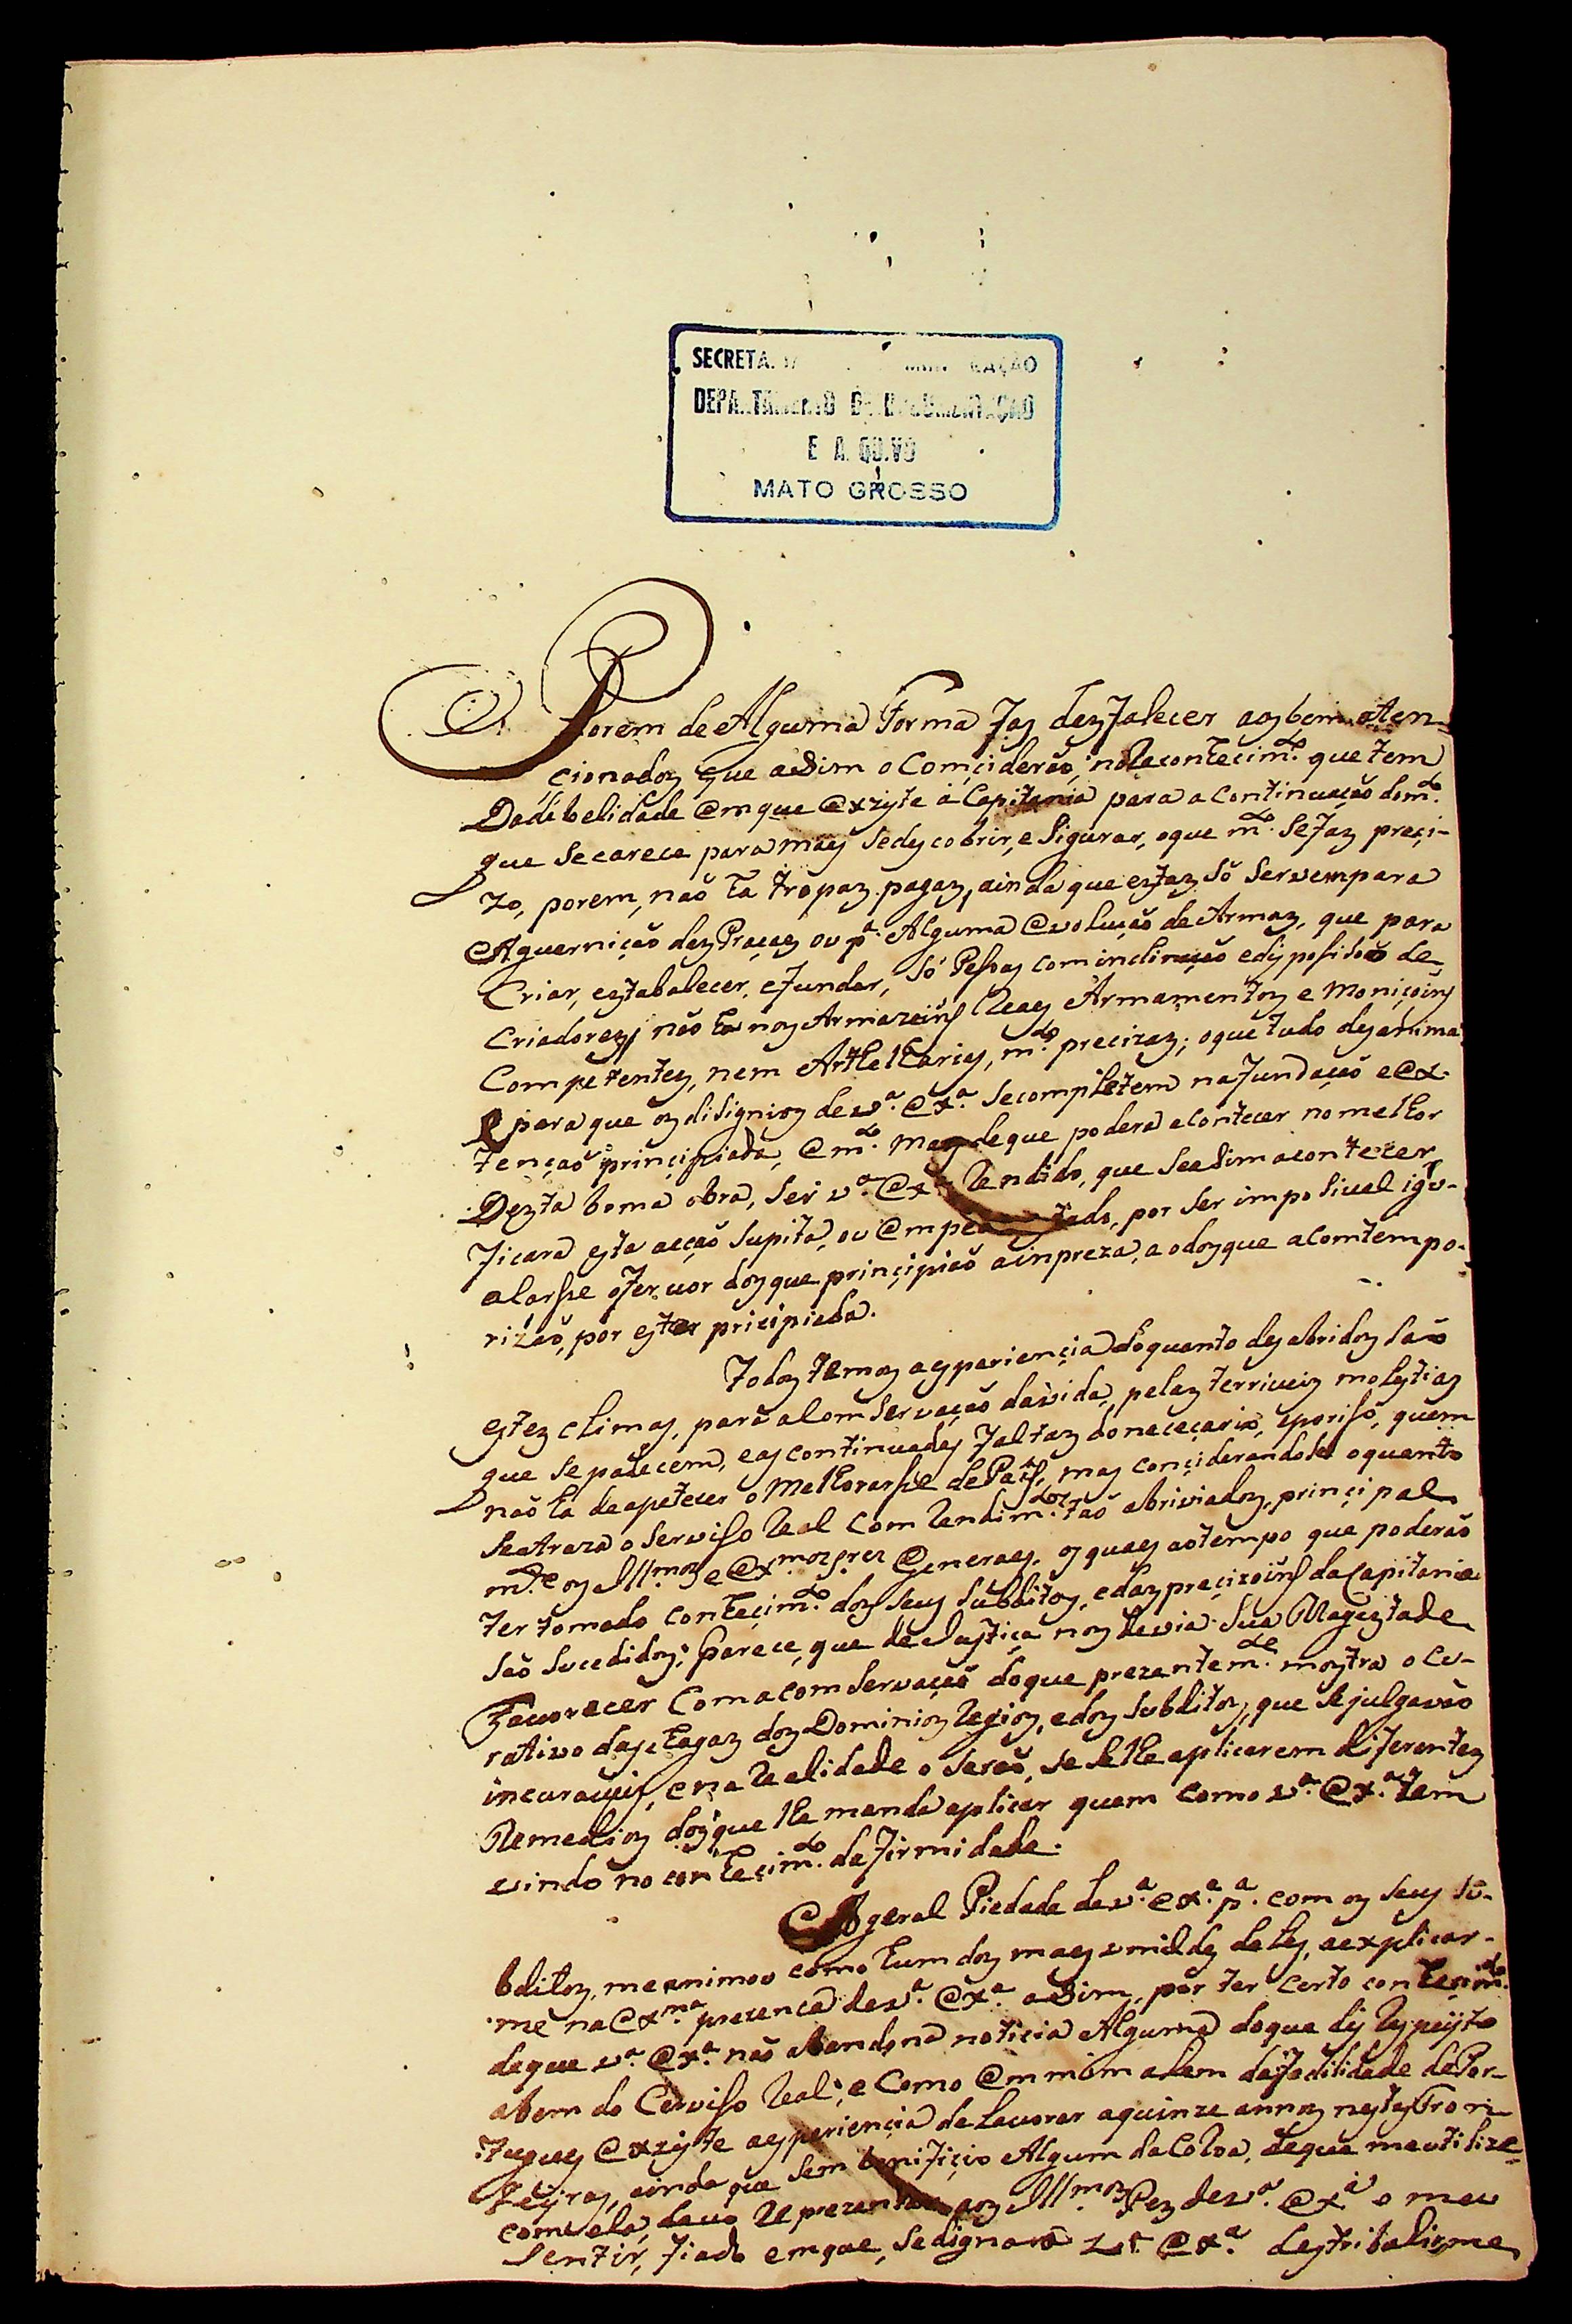 SECRETA.
DEPARTAMENTO DE DOCUMENTAÇÃO
E ARQUIVO
MATO GROSSO
Porem de Alguma Forma Faz dezfalecer aoz bem aten-
çionadoz que asim o Comçiderão, no Reconheçim.to que tem
Da dibelidade Em que Exziste a Capitania para a continuação do m.to
que Se carece para mays Se dyscobrir, e Sigurar, o que m.to Se Faz preçi-
zo, porem, não ha tropaz pagaz, ainda que eztaz Só Servem para
A guerniçâo dez Praçaz ou p.a Alguma Evolução de Armaz, que para
Criar, eztabalecer, e fundar, Só Pesoaz com inclinação e disposisão de
Criadorez, não ha noz Armazeins Reays Armamentoz e Moniçoins
Competentez, nem Arthelharias, m.to precizaz; o que tudo dezanima
para que oz disignioz de v.a Ex.a Se completem na fundação e Ex-
tenção prinçipiada, E m.to Mays de que podera acontecer no melhor
Dezta boma obra, Ser v.a Ex.a Rendido, que Se asim acontecer,
Ficara esta acção Supita, ou por Ser imposivel igu-
alarse o Fervor doz que prinçipião a inpreza, a o doz que a Comtempo-
rizão, por ester pricipiada.
Todoz temoz a esperiençia do quanto dezabridoz São
estez climaz, para a Com Servação da vida, pelaz terriveiz molestiaz
que Se padecem, e as continuadaz Faltaz do neceçario, e por iso, quem
não ha de apetecer o Melhorarse de Paiz, mas conçiderandose o quanto
Se atraza o Serviso Real com Rendim.tos tão abriviadoz, prinçipal
m.te oz Ill.mos e Ex.mos Sres Generaes, oz quaes ao tempo que poderão
ter tomado conheçim.to doz Seuz Subditoz, e daz preçizoins da Capitania
São Sucedidoz; Parece, que de Justiça noz devia Sua Magestade
Favorecer Com a com Servação do que prezentem.te mostra o Cu-
rativo das chagaz doz Dominioz Regioz, e doz Subditoz, que Se julgavão
incuraveis, e na Realidade o Serão, Se Se lhe aplicarem diferentez
Remedioz doz que lhe manda aplicar quem como v.a Ex.a tem
vindo no conheçim.to da Firmidade.
A geral Piedade de v.a Ex.a p.a com oz Seuz Su-
bditoz, me animou como hum doz mays umildes deles, a explicar-
me na Ex.ma prezenca de v.a Ex.a asim, por ter Certo conheçim.to
de que v.a Ex.a não abandona noticia Alguma do que diz Respeyto
a bem do Cerviso Real; e Como Em mim alem da Facilidade de Por-
tuguez Exziste a esperiençia de Lavorar a quinze annoz nestas Fron-
teyraz, ainda que Sem benifiçio Algum da Cobra, de que me utilize
com ela, devo Reprezentar aoz Ill.mos Pez de v.a Ex.a o meu
Sentir, Fiado em que, Se dignará v.a Ex.a destribalisme